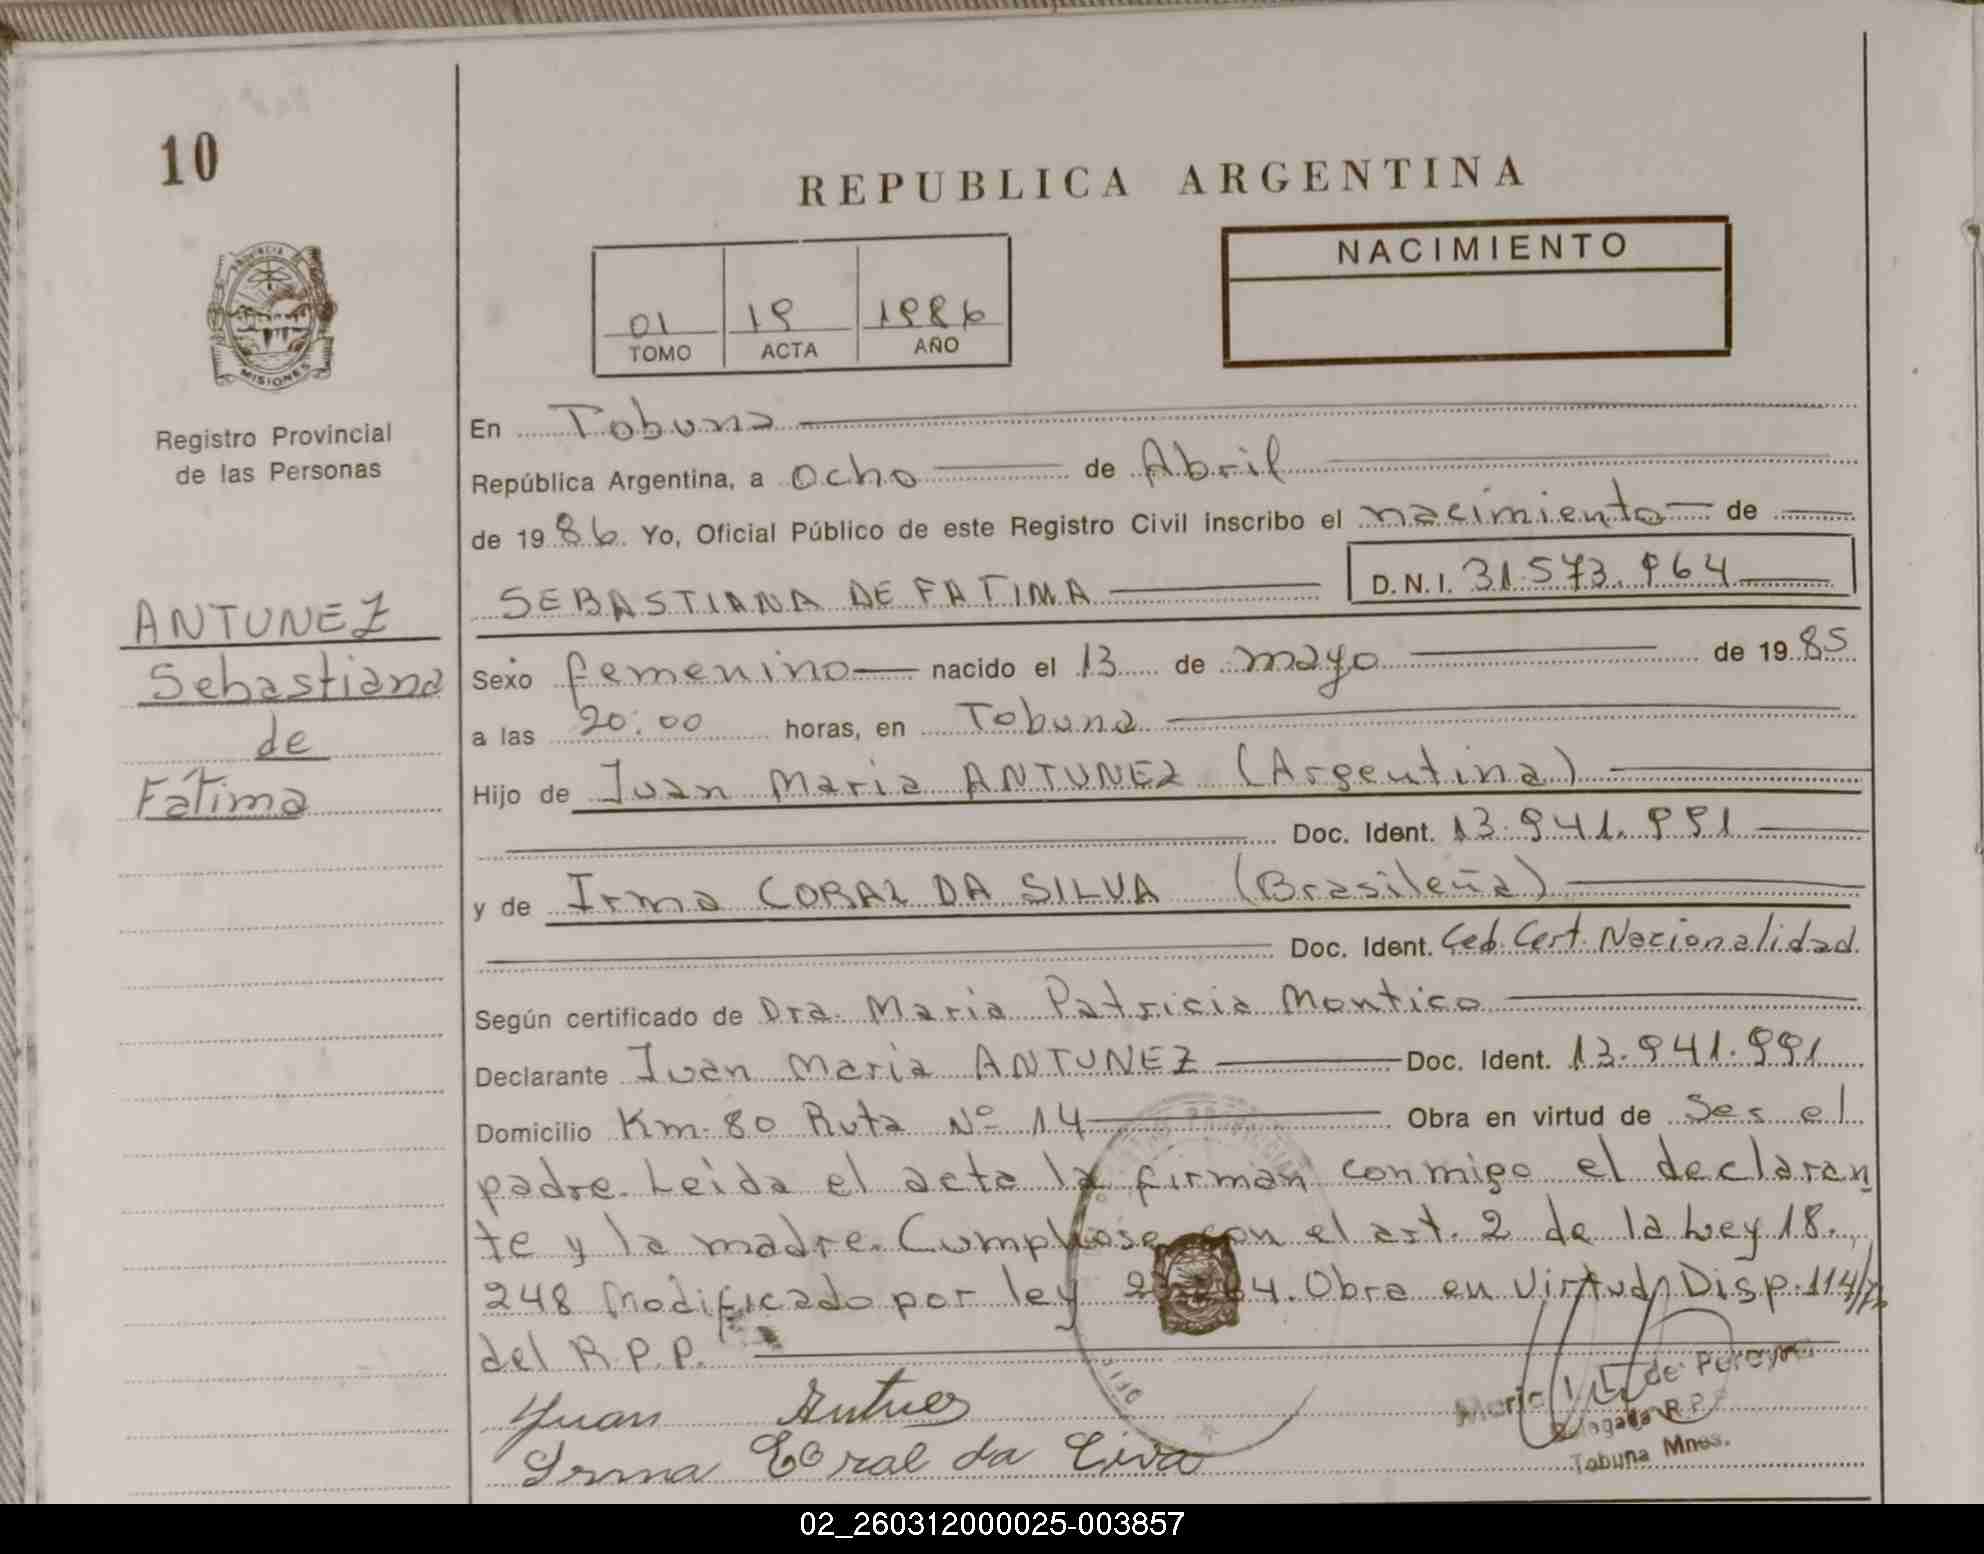 10
REPUBLICA ARGENTINA
NACIMIENTO
01 19 1986
TOMO ACTA AÑO
PROVINCIA DE
MISIONES
Registro Provincial
de las Personas
En Tobuna
República Argentina, a ocho de Abril
de 1986. Yo, Oficial Público de este Registro Civil inscribo el nacimiento de
SEBASTIANA DE FATIMA D.N.I. 31.573.964
ANTUNEZ
Sebastiana
de
Fatima
Sexo femenino nacido el 13 de mayo de 1985
a las 20:00 horas, en Tobuna
Hijo de Juan Maria ANTUNEZ (Argentina)
Doc. Ident. 13.941.991
y de Irma CORAL DA SILVA (Brasileña)
Doc. Ident. Ced. Cert. Nacionalidad
Según certificado de Dra. Maria Patricia Montico
Declarante Juan Maria ANTUNEZ Doc. Ident. 13.941.991
Domicilio Km. 80 Ruta Nº 14 Obra en virtud de Ser el
padre. Leida el acta la firman conmigo el declaran
te y la madre. Cumpliose con el art. 2 de la Ley 18.
248 Modificado por ley 4. Obra en Virtud Disp. 114/
del R.P.P.
Juan Antues
Irma Coral da Civa
Maria de Pereyra
Delegada R.P.P.
Tobuna Mnes.
02_260312000025-003857